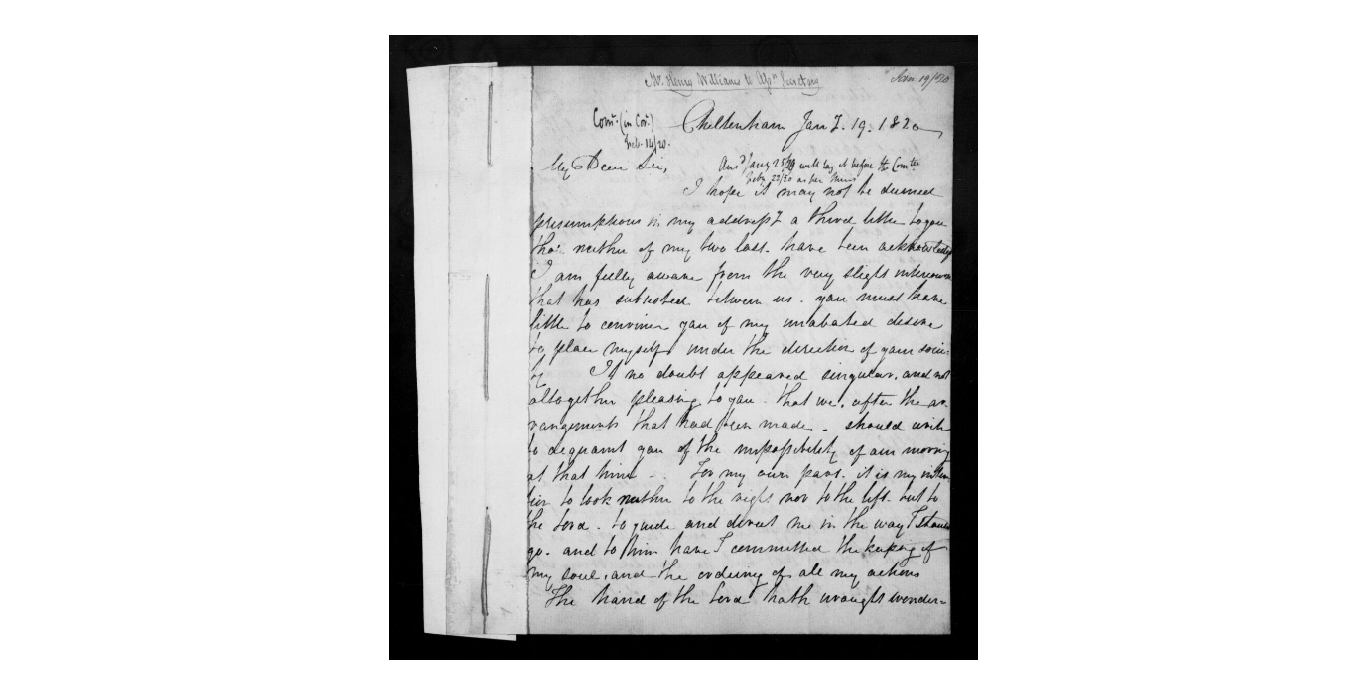 Mr. Henry Williams to Assn Secretary
Jany 19/20
Comee (in Cor.)
Feb. 14/20.
Cheltenham Jany. 19. 1820
My Dear Sir,
will lay it before the Comee
Feby 22/20 as per Mins
I hope it may not be deemed
presumptious in my addressg a third letter to you
tho' neither of my two last. have been acknowledg
I am fully aware from the very slight intercourse
that has subsisted between us. you must have
little to convince you of my unabated desire
to place myself under the direction of your socie-
ty It no doubt appeared singular, and not
altogether pleasing to you. that we, after the ar-
rangements that had been made - should write
to acquaint you of the impossibility of our moving
at that time - . For my own part. it is my inten
tion to look neither to the right nor to the left. but to
the Lord. to guide and direct me in the way I should
go. and to him have I committed the keeping of
my soul, and the ordering of all my actions
The hand of the Lord hath wrought wonder=